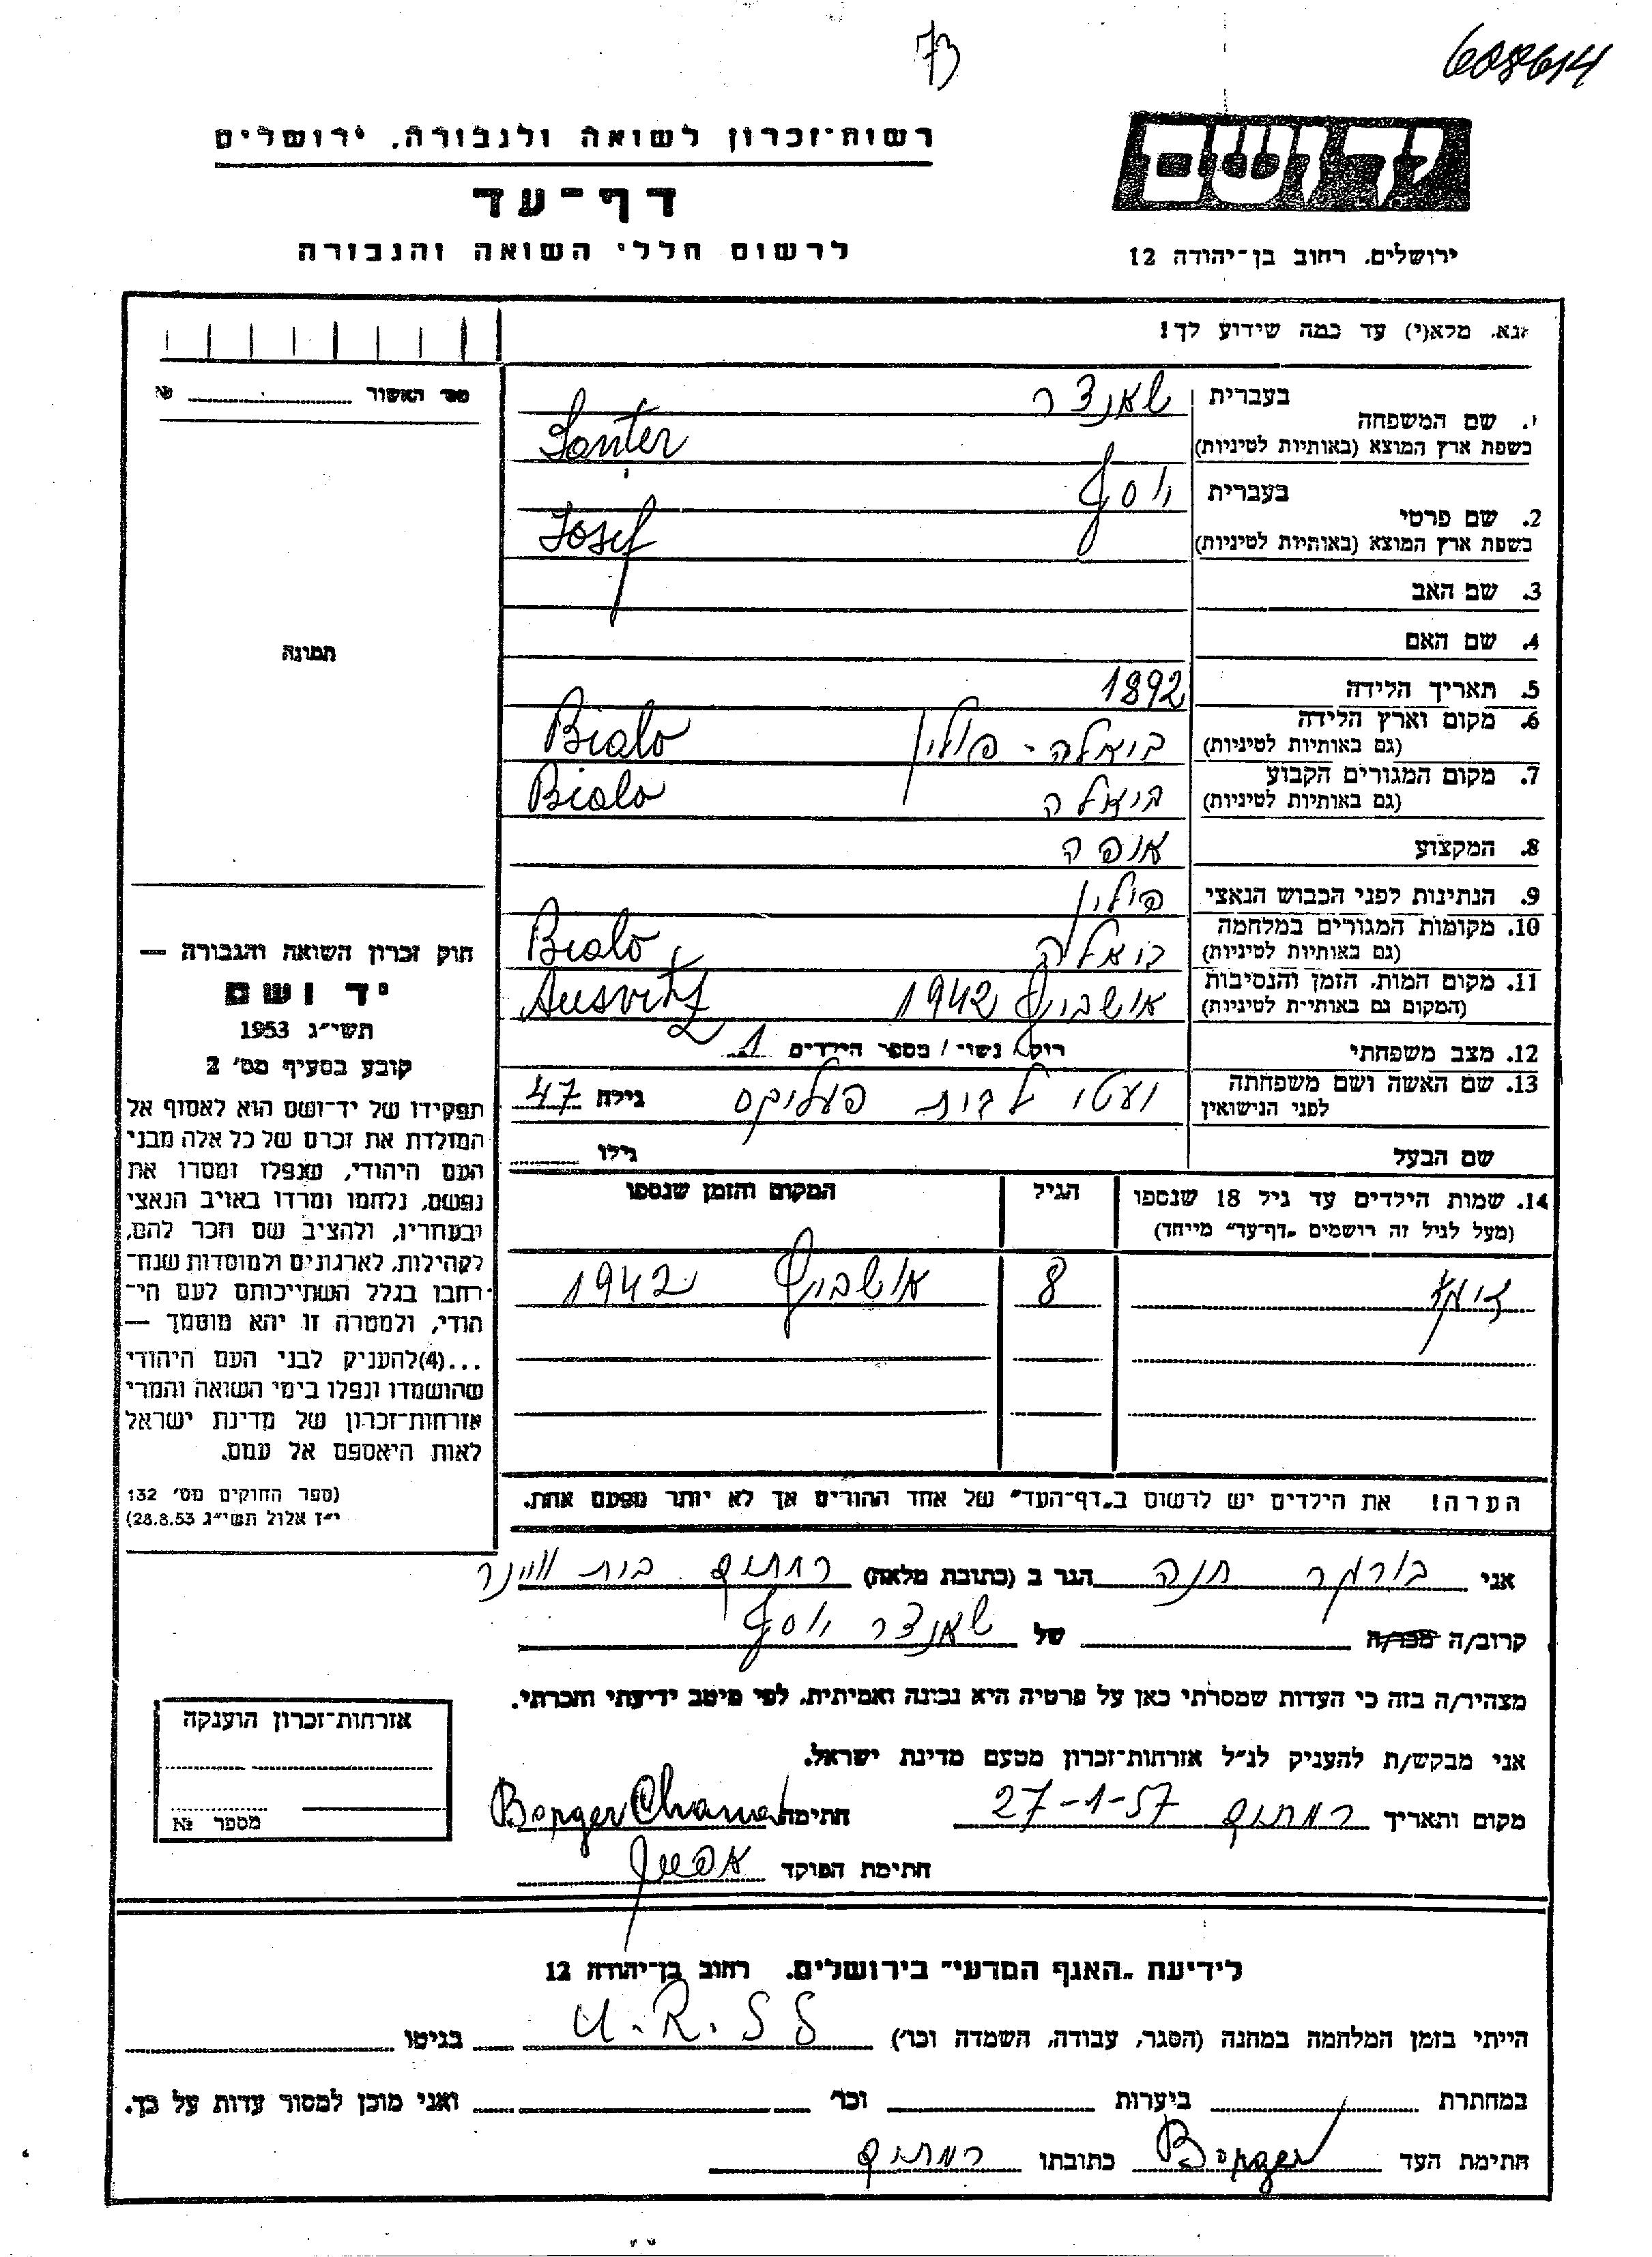 73
608614
רשות־זכרון לשואה ולגבורה, ירושלים
יד ושם
דף־עד
לרשום חללי השואה והגבורה
ירושלים, רחוב בן־יהודה 12
נא, מלא(י) עד כמה שידוע לך!
מס׳ האשור №
1. שם המשפחה
בעברית שאנדצר
בשפת ארץ המוצא (באותיות לטיניות) Santer
2. שם פרטי
בעברית יוסף
בשפת ארץ המוצא (באותיות לטיניות) Josef
3. שם האב
4. שם האם
תמונה
5. תאריך הלידה 1892
6. מקום וארץ הלידה
(גם באותיות לטיניות) ביאלה - פולין Bialo
7. מקום המגורים הקבוע
(גם באותיות לטיניות) ביאלה Bialo
8. המקצוע אופה
9. הנתינות לפני הכבוש הנאצי פולין
10. מקומות המגורים במלחמה
(גם באותיות לטיניות) ביאלה Bialo
11. מקום המות, הזמן והנסיבות
(המקום גם באותיות לטיניות) אושביץ 1942 Ausvitz
12. מצב משפחתי רווק / נשוי / מספר הילדים 1
13. שם האשה ושם משפחתה
לפני הנישואין לבית גילה 47
שם הבעל גילו
14. שמות הילדים עד גיל 18 שנספו
(מעל לגיל זה רושמים "דף־עד" מייחד)
הגיל
המקום והזמן שנספו
8 אושביץ 1942
חוק זכרון השואה והגבורה —
יד ושם
תשי״ג 1953
קובע בסעיף מס׳ 2
תפקידו של יד־ושם הוא לאסוף אל
המולדת את זכרם של כל אלה מבני
העם היהודי, שנפלו ומסרו את
נפשם, נלחמו ומרדו באויב הנאצי
ובעוזריו, ולהציב שם וזכר להם,
לקהילות, לארגונים ולמוסדות שנח־
רבו בגלל השתייכותם לעם הי־
הודי, ולמטרה זו יהא מוסמך —
...(4) להעניק לבני העם היהודי
שהושמדו ונפלו בימי השואה והמרי
אזרחות־זכרון של מדינת ישראל
לאות היאספם אל עמם.
(ספר החוקים מס׳ 132
י״ז אלול תשי״ג 28.8.53)
הערה! את הילדים יש לרשום ב"דף־העד" של אחד ההורים אך לא יותר מפעם אחת.
אני בורגר חנה הגר ב (כתובת מלאה) בית
קרוב/ה מכר/ה של שאנדצר יוסף
מצהיר/ה בזה כי העדות שמסרתי כאן על פרטיה היא נכונה ואמיתית, לפי מיטב ידיעתי והכרתי.
אני מבקש/ת להעניק לנ״ל אזרחות־זכרון מטעם מדינת ישראל.
מקום ותאריך 27-1-57 חתימה Borger Chana
חתימת הפוקד
אזרחות־זכרון הוענקה
מספר №
לידיעת "האגף המדעי" בירושלים, רחוב בן־יהודה 12
הייתי בזמן המלחמה במחנה (הסגר, עבודה, השמדה וכו׳) U.R.S.S בגיטו
במחתרת ביערות וכו׳ ואני מוכן למסור עדות על כך.
חתימת העד Borger כתובתו